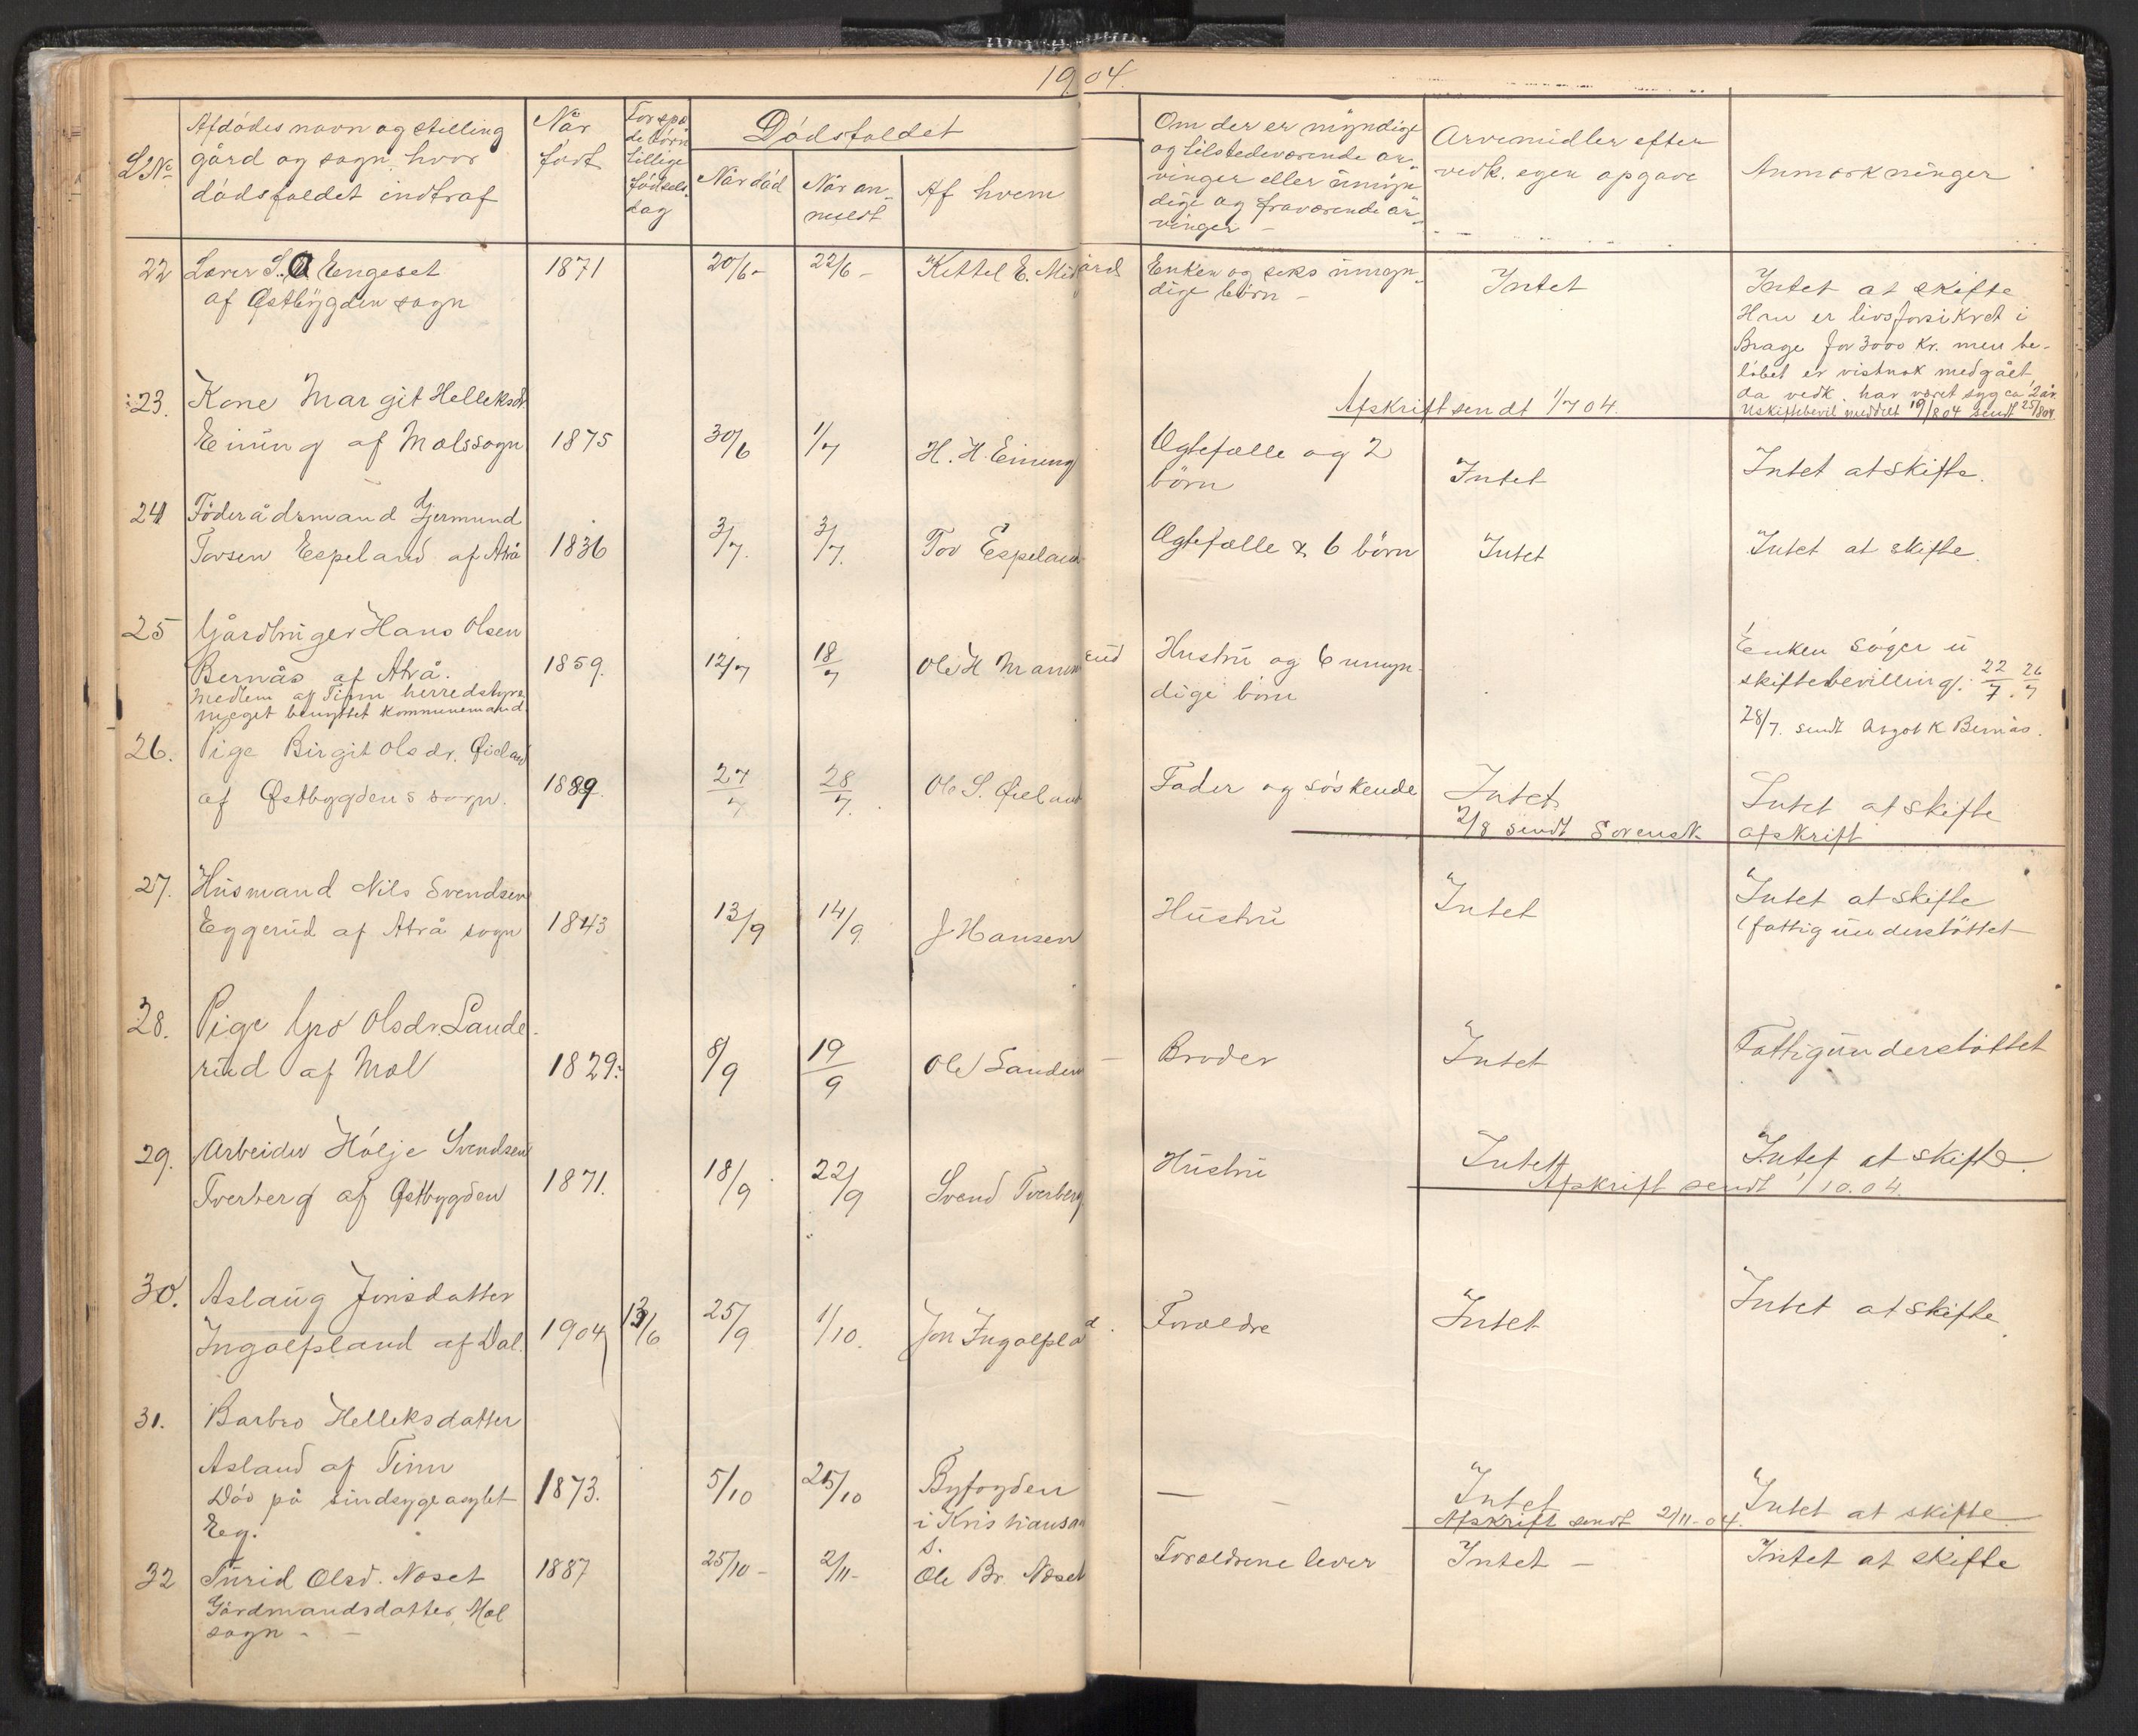 1904.
LNo
Afdödes navn og stilling
gård og sogn, hvor
dödsfaldet indtraf
Når
födt
For spæ
de börn
tillige
födsels-
dag
Dödsfaldet
Når död
Når an-
meldt
Af hvem
Om der er myndige
og tilstedeværende ar-
vinger eller umyn
dige og fraværende ar-
vinger –
Arvemidler efter
vedk. egen opgave
Anmærkninger
22 Lærer S. O Eengeset 1871 20/6- 22/6- Kittel E. Midgård Enken og seks umyn- Intet Intet at skifte
af Østbygden sogn dige börn –
Han er livsforsikret i
Brage for 3000 kr. men be-
löbet er vistnok medgået
da vedk. har været syg ca 2 år.
Afskrift sendt 1/7 04. Uskiftebevil meddelt 19/8 04 sendt 25/8 04
23. Kone Margit Helleksdr.
Einung af Mælssogn 1875 30/6 1/7 H. H. Einung Ægtefælle og 2
börn Intet Intet at skifte.
24 Föderådsmand Gjermund
Torsen Espeland af Atrå 1836 3/7. 3/7. Tov Espeland Ægtefælle & 6 börn Intet Intet at skifte.
25 Gårdbruger Hans Olsen
Bernås af Atrå. 1859. 12/7 18/7 Ole H Mannerud Hustru og 6 umyn-
dige börn
Medlem af Tinn herredstyre.
Meget benyttet kommunemand.
Enken söger u
skiftebevilling. 22/7. 26/7
28/7. sendt Asgot K Bernås.
26. Pige Birgit Olsdr. Øieland
af Østbygdens sogn. 1889. 27/7 28/7. Ole S. Øieland Fader og söskende Intet. Intet at skifte
2/8 sendt Sorensk. afskrift
27. Husmand Nils Svendsen
Eggerud af Atrå sogn 1843 13/9 14/9. J Hansen Hustru Intet Intet at skifte
(fattigunderstöttet
28. Pige Gro Olsdr. Sande-
rud af Mæl 1829. 8/9 19/9 Ole Sanderu – Broder Intet Fattigunderstöttet
29. Arbeider Hölje Svendsen
Tverberg af Østbygden 1871. 18/9 22/9 Svend Tverberg. Hustru Intet Intet at skifte.
Afskrift sendt 1/10.04.
30. Aslaug Jonsdatter
Ingolfsland af Dal. 1904 13/6 25/9 1/10. Jon Ingolfsland. Forældre Intet Intet at skifte.
31. Barbro Helleksdatter
Asland af Tinn
Död på sindsygeasylet 1873. 5/10 25/10 Byfogden
i Kristiansan
s. – – Intet Intet at skifte
Eeg. Afskrift sendt 2/11-04.
32 Turid Olsd. Næset 1887 25/10- 2/11- Ole Br. Næset Forældrene lever Intet – Intet at skifte
Gårdmandsdatter, Mæl
sogn –